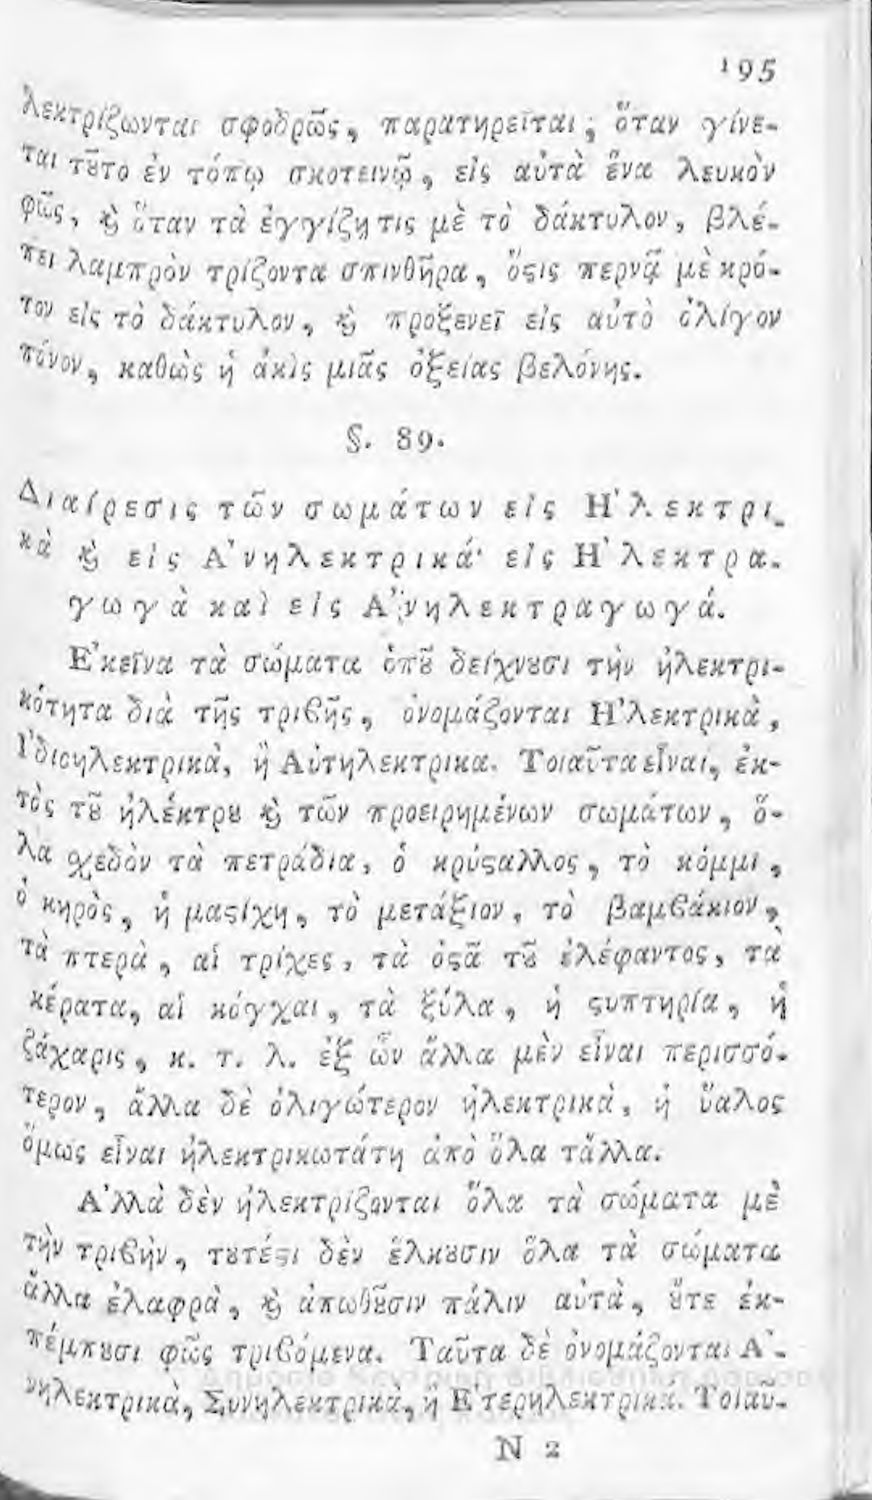 195
λεκτρίζωνται σφοδρῶς, παρατηρεῖται, ὅταν γίνε-
ται τȣ͂το ἐν τόπῳ σκοτεινῷ, εἰς αὐτὰ ἕνα λευκὸν
φῶς, ϗ̀ ὅταν τὰ ἐγγίζῃ τις μὲ τὸ δάκτυλον, βλέ-
πει λαμπρὸν τρίζοντα σπινθῆρα, ὅϛις περνᾷ μὲ κρό-
τον εἰς τὸ δάκτυλον, ϗ̀ προξενεῖ εἰς αὐτὸ ὀλίγον
πόνον, καθὼς ἡ ἀκὶς μιᾶς ὀξείας βελόνης.
§. 89.
Διαίρεσις τῶν σωμάτων εἰς Η᾿λεκτρι-
κὰ ϗ̀ εἰς Α᾿νηλεκτρικά· εἰς Η᾿λεκτρα-
γωγὰ καὶ εἰς Α᾿νηλεκτραγωγά.
Ε᾿κεῖνα τὰ σώματα ὁπȣ͂ δείχνȣσι τὴν ἠλεκτρι-
κότητα διὰ τῆς τριϐῆς, ὀνομάζονται Η᾿λεκτρικὰ,
Ι᾿διοηλεκτρικὰ, ἢ Αὐτηλεκτρικα. Τοιαῦτα εἶναι, ἐκ-
τὸς τȣ͂ ἠλέκτρȣ ϗ̀ τῶν προειρημένων σωμάτων, ὅ-
λα σχεδὸν τὰ πετράδια, ὁ κρύϛαλλος, τὸ κόμμι,
ὁ κηρὸς, ἡ μαϛίχη, τὸ μετάξιον, τὸ βαμϐάκιον,
τὰ πτερὰ, αἱ τρίχες, τὰ ὀϛᾶ τȣ͂ ἐλέφαντος, τὰ
κέρατα, αἱ κόγχαι, τὰ ξύλα, ἡ ϛυπτηρία, ἡ
ζάχαρις, κ. τ. λ. ἐξ ὧν ἄλλα μὲν εἶναι περισσό-
τερον, ἄλλα δὲ ὀλιγώτερον ἠλεκτρικὰ, ἡ ὕαλος
ὅμως εἶναι ἠλεκτρικωτάτη ἀπὸ ὅλα τἄλλα.
Α᾿λλὰ δὲν ἠλεκτρίζονται ὅλα τὰ σώματα μὲ
τὴν τριϐὴν, τȣτέϛι δὲν ἕλκȣσιν ὅλα τὰ σώματα
ἄλλα ἐλαφρὰ, ϗ̀ ἀπωθȣ͂σιν πάλιν αὐτὰ, ȣ̓́τε ἐκ-
πέμπȣσι φῶς τριϐόμενα. Ταῦτα δὲ ὀνομάζονται Α᾿-
νηλεκτρικὰ, Συνηλεκτρικὰ, ἢ Ε῾τερηλεκτρικα. Τοιαῦ-
N 2